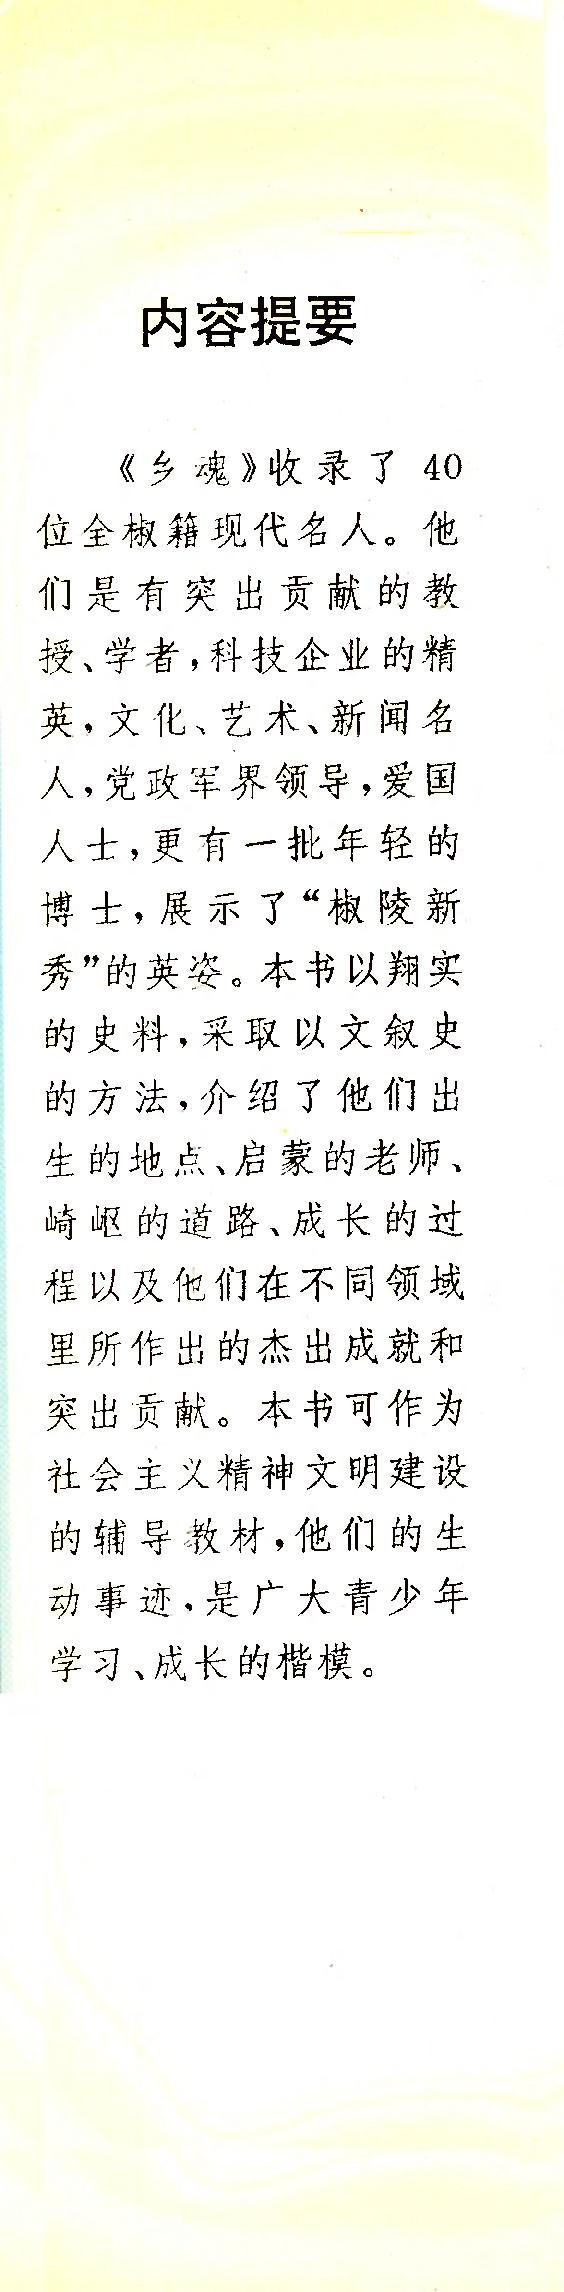 内容提要
《乡魂》收录了 40
位全椒籍现代名人。他
们是有突出贡献的教
授、学者,科技企业的精
英,文化、艺术、新闻名
人,党政军界领导,爱国
人士,更有一批年轻的
博士,展示了“椒陵新
秀”的英姿。本书以翔实
的史料,采取以文叙史
的方法,介绍了他们出
生的地点、启蒙的老师、
崎岖的道路、成长的过
程以及他们在不同领域
里所作出的杰出成就和
突出贡献。本书可作为
社会主义精神文明建设
的辅导教材,他们的生
动事迹,是广大青少年
学习、成长的楷模。